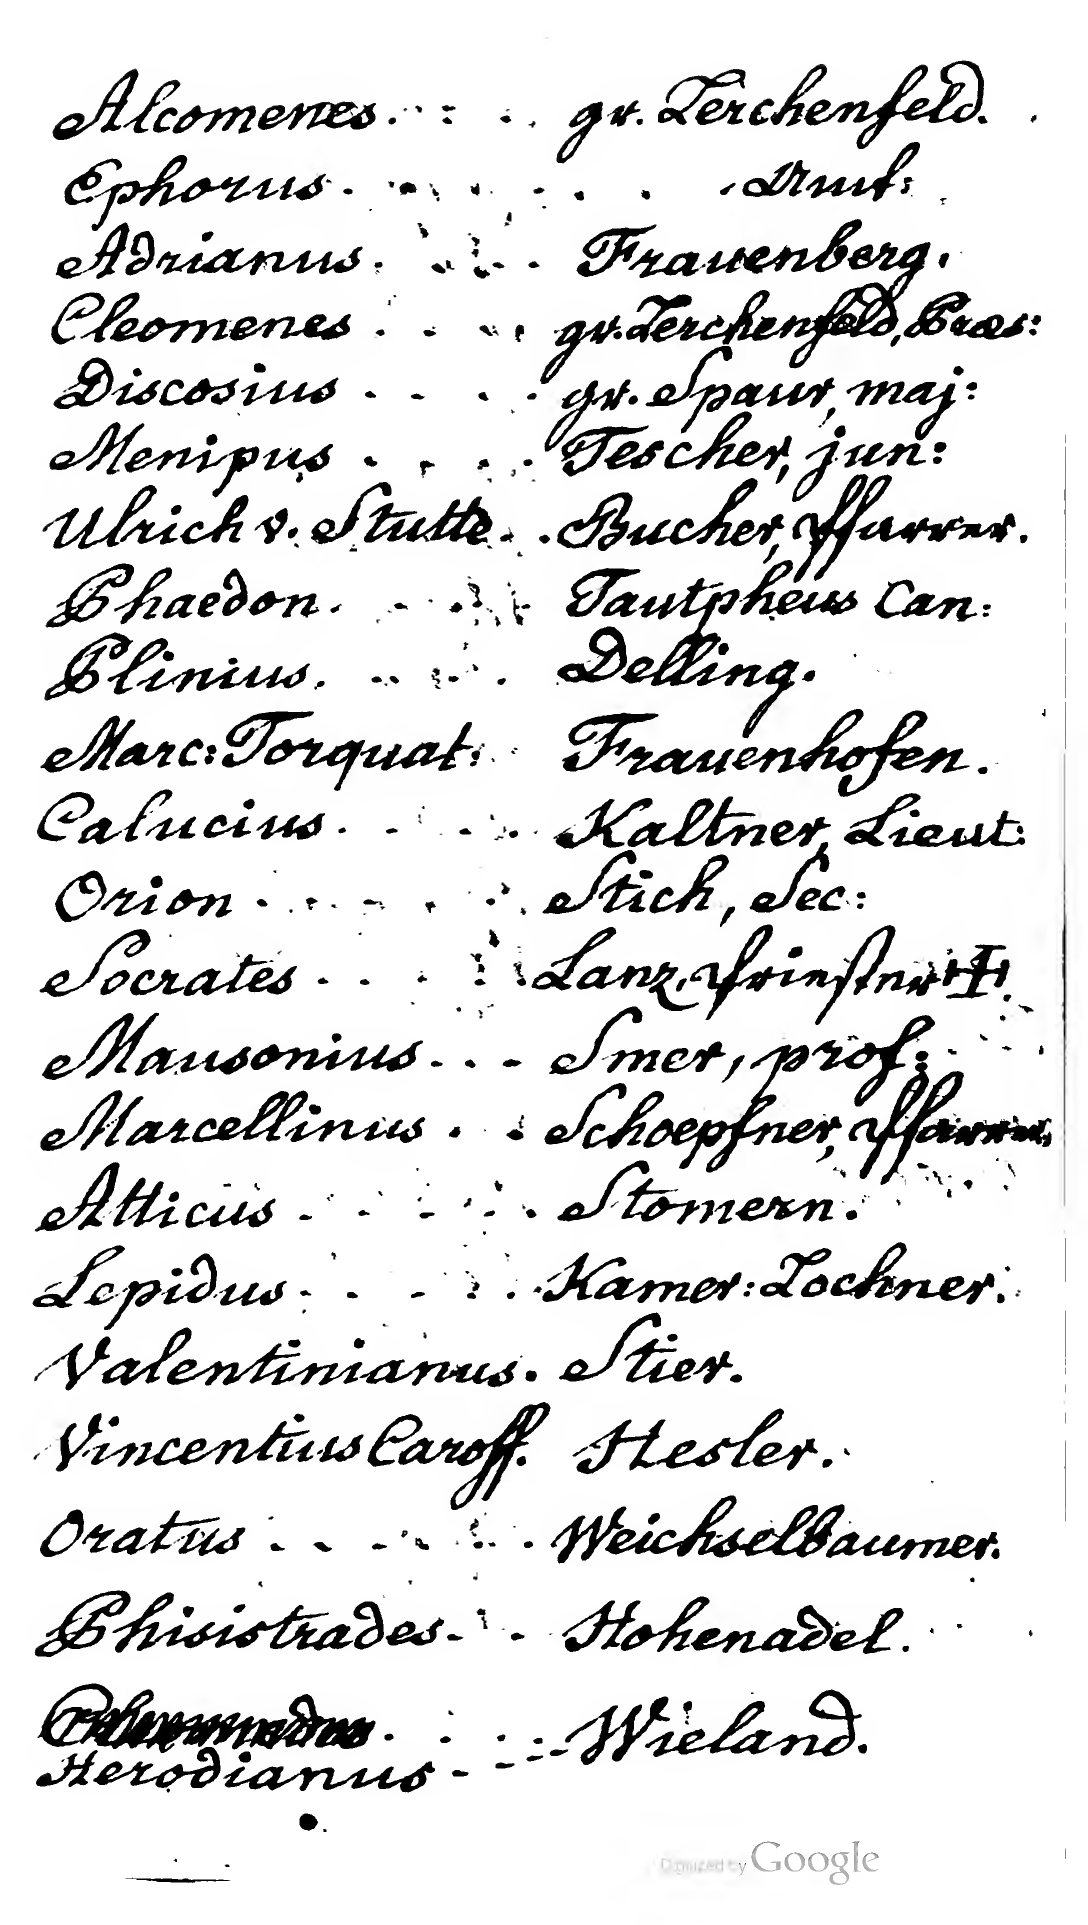 Alcomenes . . . . gr. Lerchenfeld.
Ephorus . . . . . .
Adrianus . . . . Frauenberg.
Cleomenes . . . . gr. Lerchenfeld, Praes:
Discosius . . . . gr. Spaur, maj:
Menipus . . . . Tescher, jun:
Ulrich v. Stutte . . Bucher, Pfarrer.
Phaedon . . . . Tautpheus Can:
Plinius . . . . Delling.
Marc: Torquat: Frauenhofen.
Calucius . . . . Kaltner, Lieut:
Orion . . . . . Stich, Sec:
Socrates . . . . Lanz, Priester
Mausonius . . . Smer, prof:
Marcellinus . . Schoepfner, Pfarrer.
Atticus . . . . . Stomern.
Lepidus . . . . . Kamer: Lochner.
Valentinianus . Stier.
Vincentius Caroff. Hesler.
Oratus . . . . . Weichselbaumer.
Phisistrades . . Hohenadel.
. . . . Wieland.
Herodianus
Digitized by Google